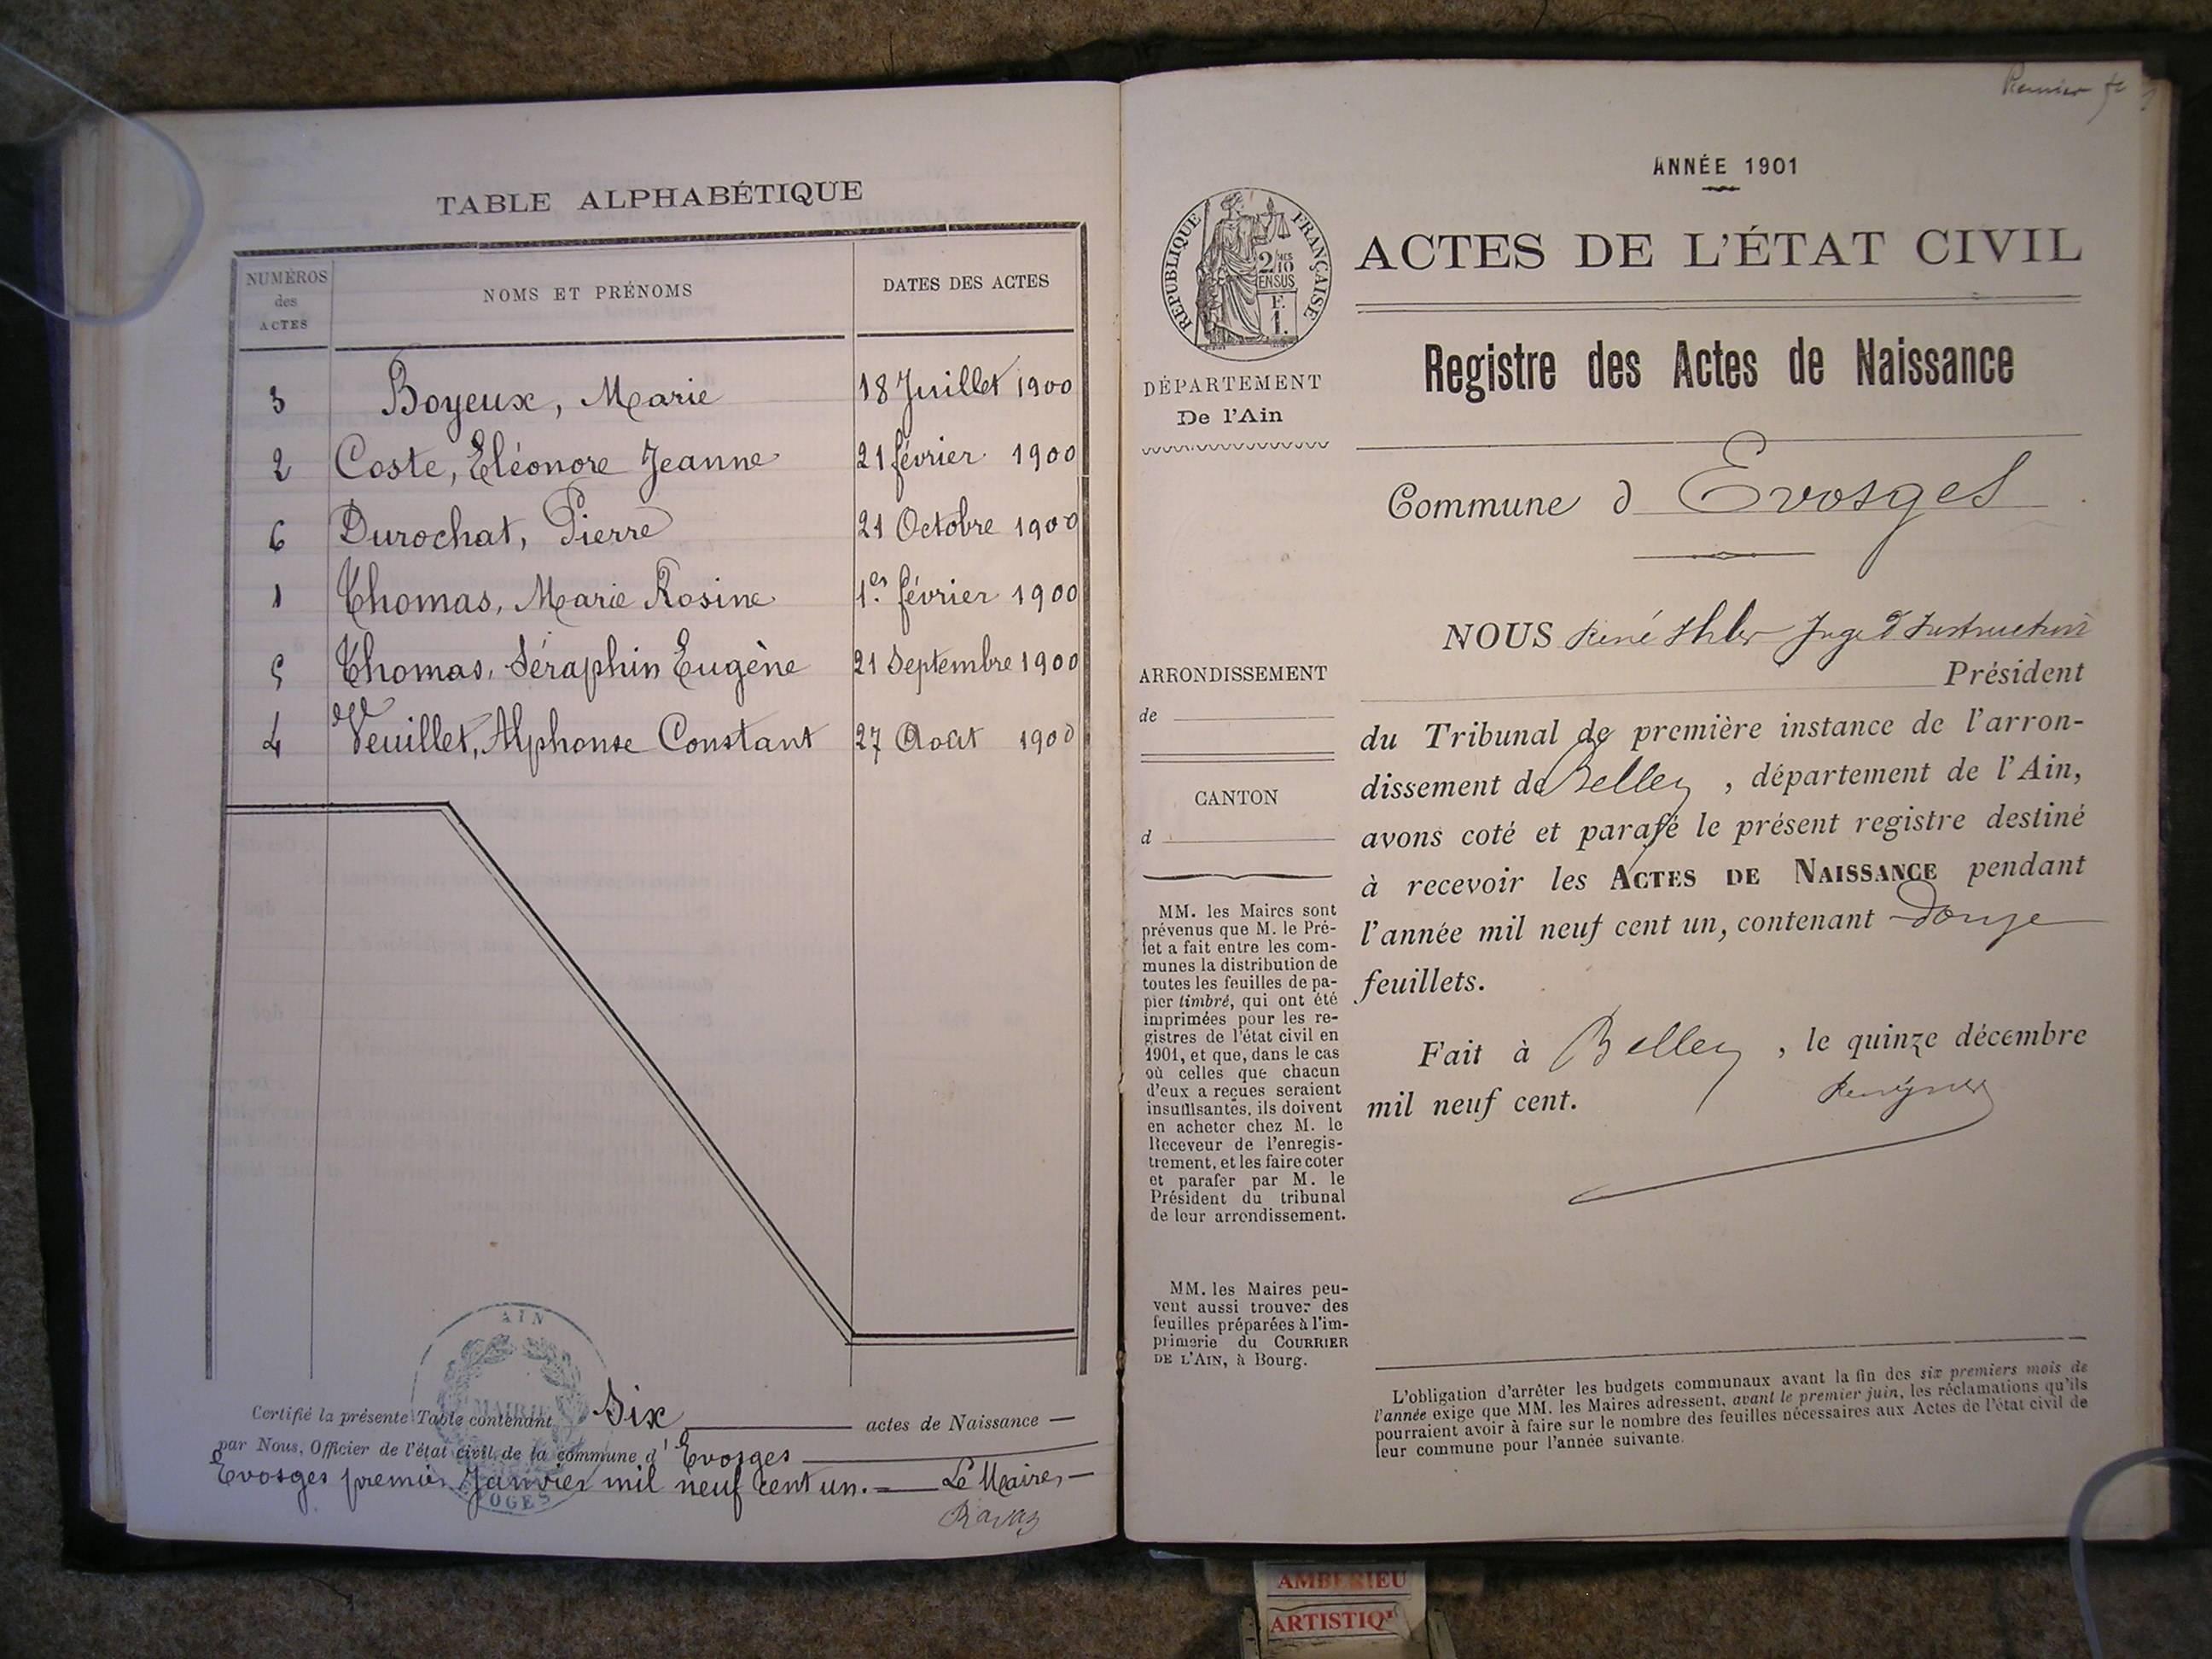 TABLE ALPHABÉTIQUE
NUMÉROS
des
ACTES
NOMS ET PRÉNOMS
DATES DES ACTES
3 Boyeux, Marie 18 Juillet 1900
2 Coste, Eléonore Jeanne 21 février 1900
6 Durochat, Pierre 21 Octobre 1900
1 Thomas, Marie Rosine 1er février 1900
5 Thomas, Séraphin Eugène 21 Septembre 1900
4 Veuillet, Alphonse Constant 27 Août 1900
AIN
MAIRIE
OGES
Certifié la présente Table contenant Six actes de Naissance
par Nous, Officier de l'état civil de la commune d' Evosges
Evosges premier Janvier mil neuf cent un. Le Maire,
Ravaz
Premier
ANNÉE 1901
RÉPUBLIQUE FRANÇAISE
2/10 MES
EN SUS
F.
1.
ACTES DE L'ÉTAT CIVIL
Registre des Actes de Naissance
DÉPARTEMENT
De l'Ain
Commune d Evosges
NOUS René Juge d'Instruction
Président
ARRONDISSEMENT
de
CANTON
d
du Tribunal de première instance de l'arron-
dissement de Belley, département de l'Ain,
avons coté et parafé le présent registre destiné
à recevoir les ACTES DE NAISSANCE pendant
l'année mil neuf cent un, contenant Douze
feuillets.
Fait à Belley, le quinze décembre
mil neuf cent.
MM. les Maires sont
prévenus que M. le Pré-
fet a fait entre les com-
munes la distribution de
toutes les feuilles de pa-
pier timbré, qui ont été
imprimées pour les re-
gistres de l'état civil en
1901, et que, dans le cas
où celles que chacun
d'eux a reçues seraient
insuffisantes, ils doivent
en acheter chez M. le
Receveur de l'enregis-
trement, et les faire coter
et parafer par M. le
Président du tribunal
de leur arrondissement.
MM. les Maires peu-
vent aussi trouver des
feuilles préparées à l'im-
primerie du COURRIER
DE L'AIN, à Bourg.
L'obligation d'arrêter les budgets communaux avant la fin des six premiers mois de
l'année exige que MM. les Maires adressent, avant le premier juin, les réclamations qu'ils
pourraient avoir à faire sur le nombre des feuilles nécessaires aux Actes de l'état civil de
leur commune pour l'année suivante.
AMBERIEU
ARTISTIQ